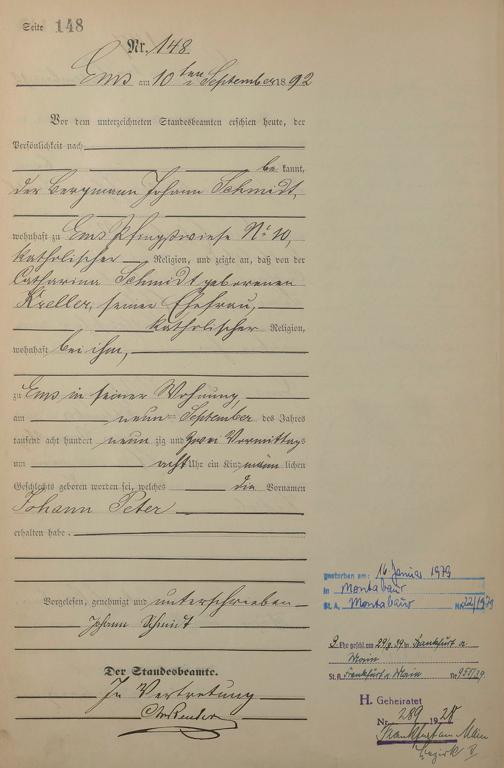 Seite 148
Nr. 148
Ems am 10ten September 1892
Vor dem unterzeichneten Standesbeamten erschien heute, der
Persönlichkeit nach
be kannt,
der Bergmann Johann Schmidt,
wohnhaft zu Ems Pfingstwiese No 10,
katholischer Religion, und zeigte an, daß von der
Catharina Schmidt geborenen
Kreller, seiner Ehefrau,
katholischer Religion,
wohnhaft bei ihm,
zu Ems in seiner Wohnung,
am neunten September des Jahres
tausend acht hundert neun zig und zwei Vormittags
um acht Uhr ein Kind männ lichen
Geschlechts geboren worden sei, welches die Vornamen
Johann Peter
erhalten habe.
Vorgelesen, genehmigt und unterschrieben
Johann Schmit
Der Standesbeamte.
In Vertretung
gestorben am: 16. Januar 1979
in Montabaur
St. A. Montabaur No 22/1979
2. Ehe geschl. am 29/8.39 in Frankfurt a.
Main
St. A. Frankfurt a. Main Nr 951/39
H. Geheiratet
Nr. 289 1928
Frankfurt am Main
Bezirk V